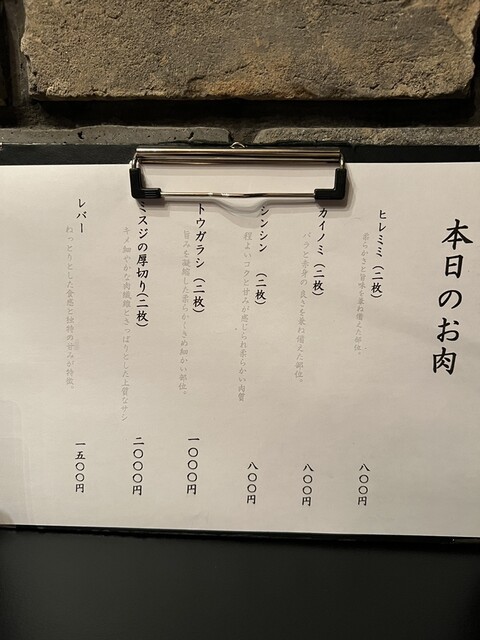 本日のお肉
ヒレミミ(二枚)
柔らかさと旨味を兼ね備えた部位。
八〇〇円
カイノミ(二枚)
バラと赤身の良さを兼ね備えた部位。
八〇〇円
シンシン(二枚)
程よいコクと甘みが感じられ柔らかい肉質
八〇〇円
トウガラシ(二枚)
旨みを凝縮した柔らかくきめ細かい部位。
一〇〇〇円
ミスジの厚切り(二枚)
キメ細やかな肉繊維とさっぱりとした上質なサシ
二〇〇〇円
レバー
ねっとりとした食感と独特の甘みが特徴。
一五〇〇円